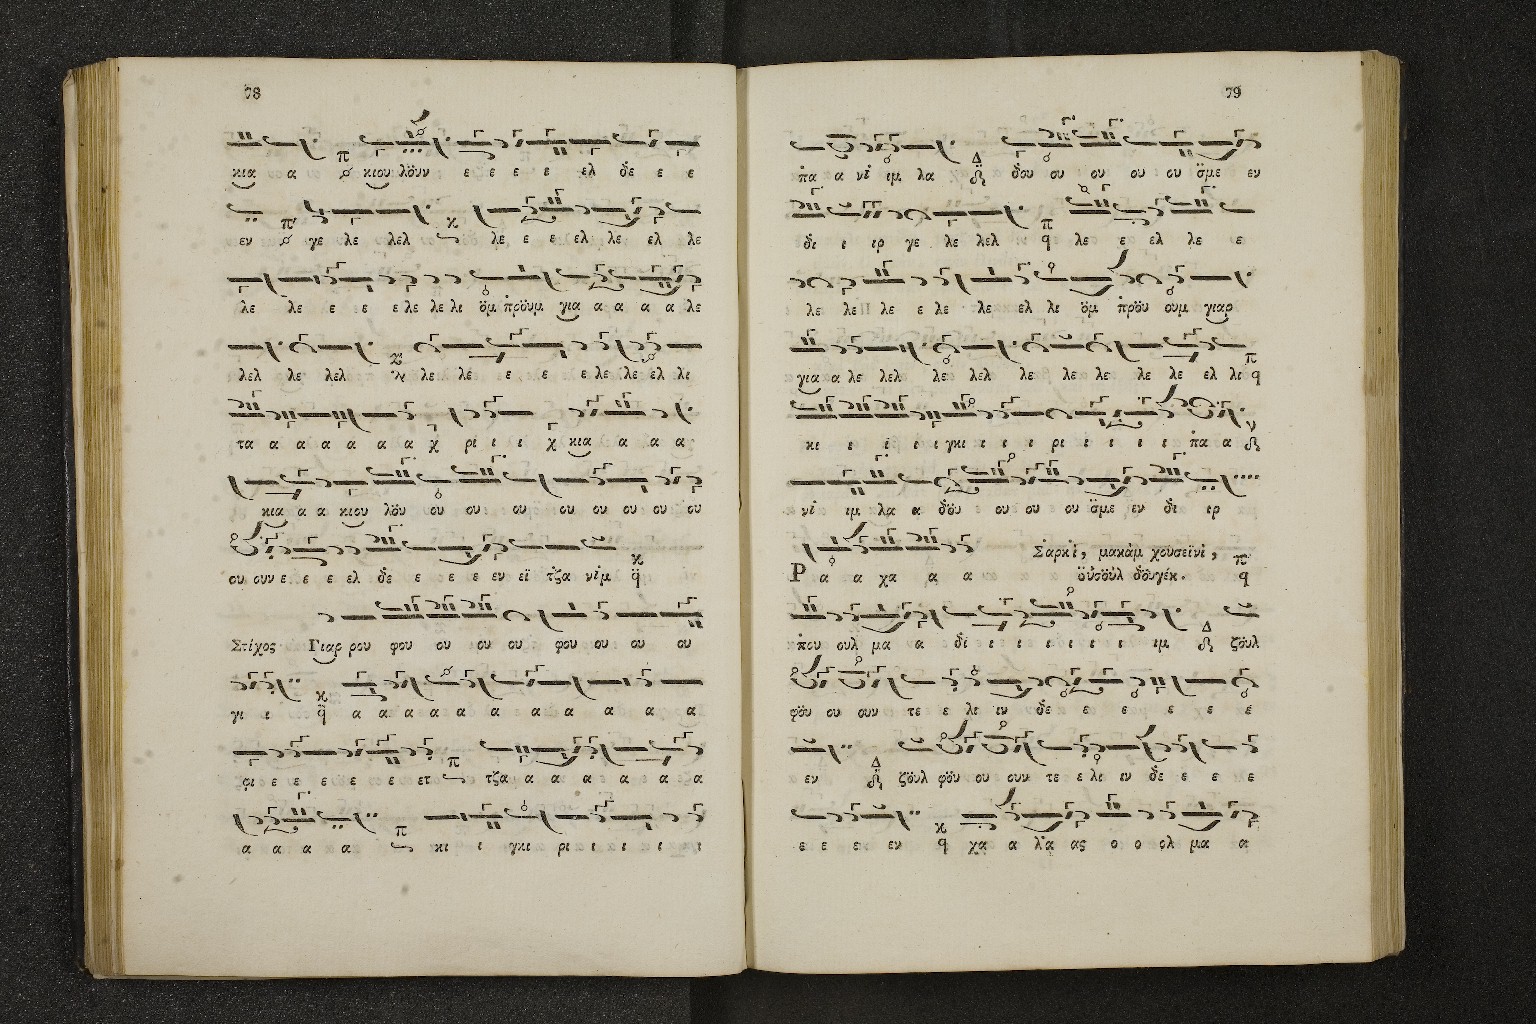 78
κια α κιου λὅυν ε ε ε ε ελ δὲ ε ε
εν γε λε λελ λε ε ε ελ λε ελ λε
λε λε ε ε ε λε λε λι ὅμ πρὅυμ για α α α α λε
λελ λε λελ λε λε ε ε ε λε λε ελ λι
τα α α α α α α χ ρι ι ι χ κια α α α
κια α α κιου λὅυ ου ου ου ου ου ου ου ου
ου ουν ε ε ε ελ δὲ ε ε ε εν εϊ τζα νὶμ
Στίχος Γιαρ ρου φου ου ου ου φου ου ου ου
γι ι α α α α α α α α α α α
φι ε ε ε ε ε ετ τζα α α α α α α α
α α α α κι ι γκι ρι ι ι ι ι
79
πα α νὶ ιμ λα δου ου ου ου ου σμε εν
δι ι ιρ γε λε λελ λε ε ελ λε ε
λε λε λε ε λε λε ελ λι ὅμ πρὅυ ουμ γιαρ
για α λε λελ λε λελ λε λε λε λε λε ελ λι
κι ι ι ι ι γκι ι ι ι ρι ι ι ι ι πα α
νὶ ιμ λα α δὅυ ου ου ου ου σμε εν δι ιρ
Σαρκὶ, μακὰμ χουσεϊνὶ,
Ρ α α χα α α ὀυσοὺλ δουγέκ.
που ουλ μα α δὶ ι ι ι ι ι ι ι ιμ ζὅυλ
φὅυ ου ουν τε ε λι ιν δε ε ε ε ε ε
εν ζὅυλ φὅυν ου ουν τε ε λι ιν δε ε ε ε
ε ε ε εν χα α λα ας ο ο ολ μα α